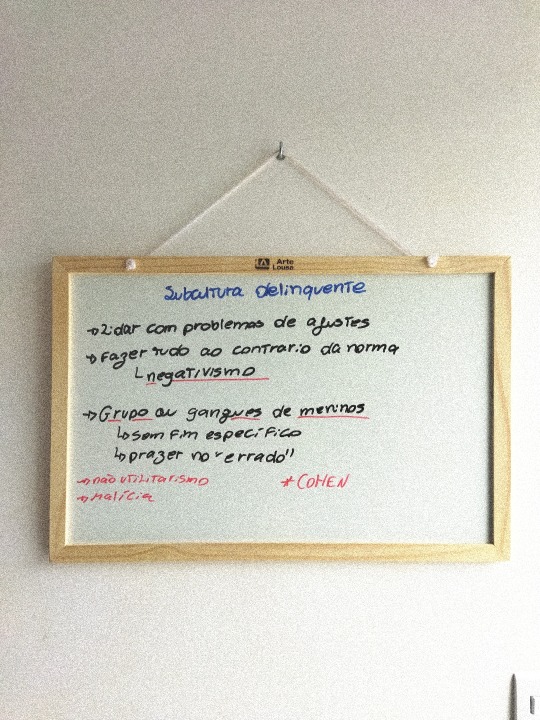 Arte
Lousa
Subcultura delinquente
→ Lidar com problemas de ajustes
→ Fazer tudo ao contrario da norma
↳ negativismo
→ Grupo ou gangues de meninos
↳ sem fim específico
↳ prazer no "errado"
→ não utilitarismo
* COHEN
→ malícia